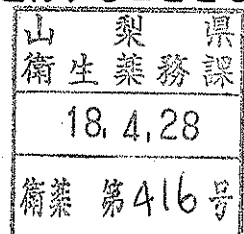 山梨県
衛生薬務課
18.4.28
衛薬 第416号